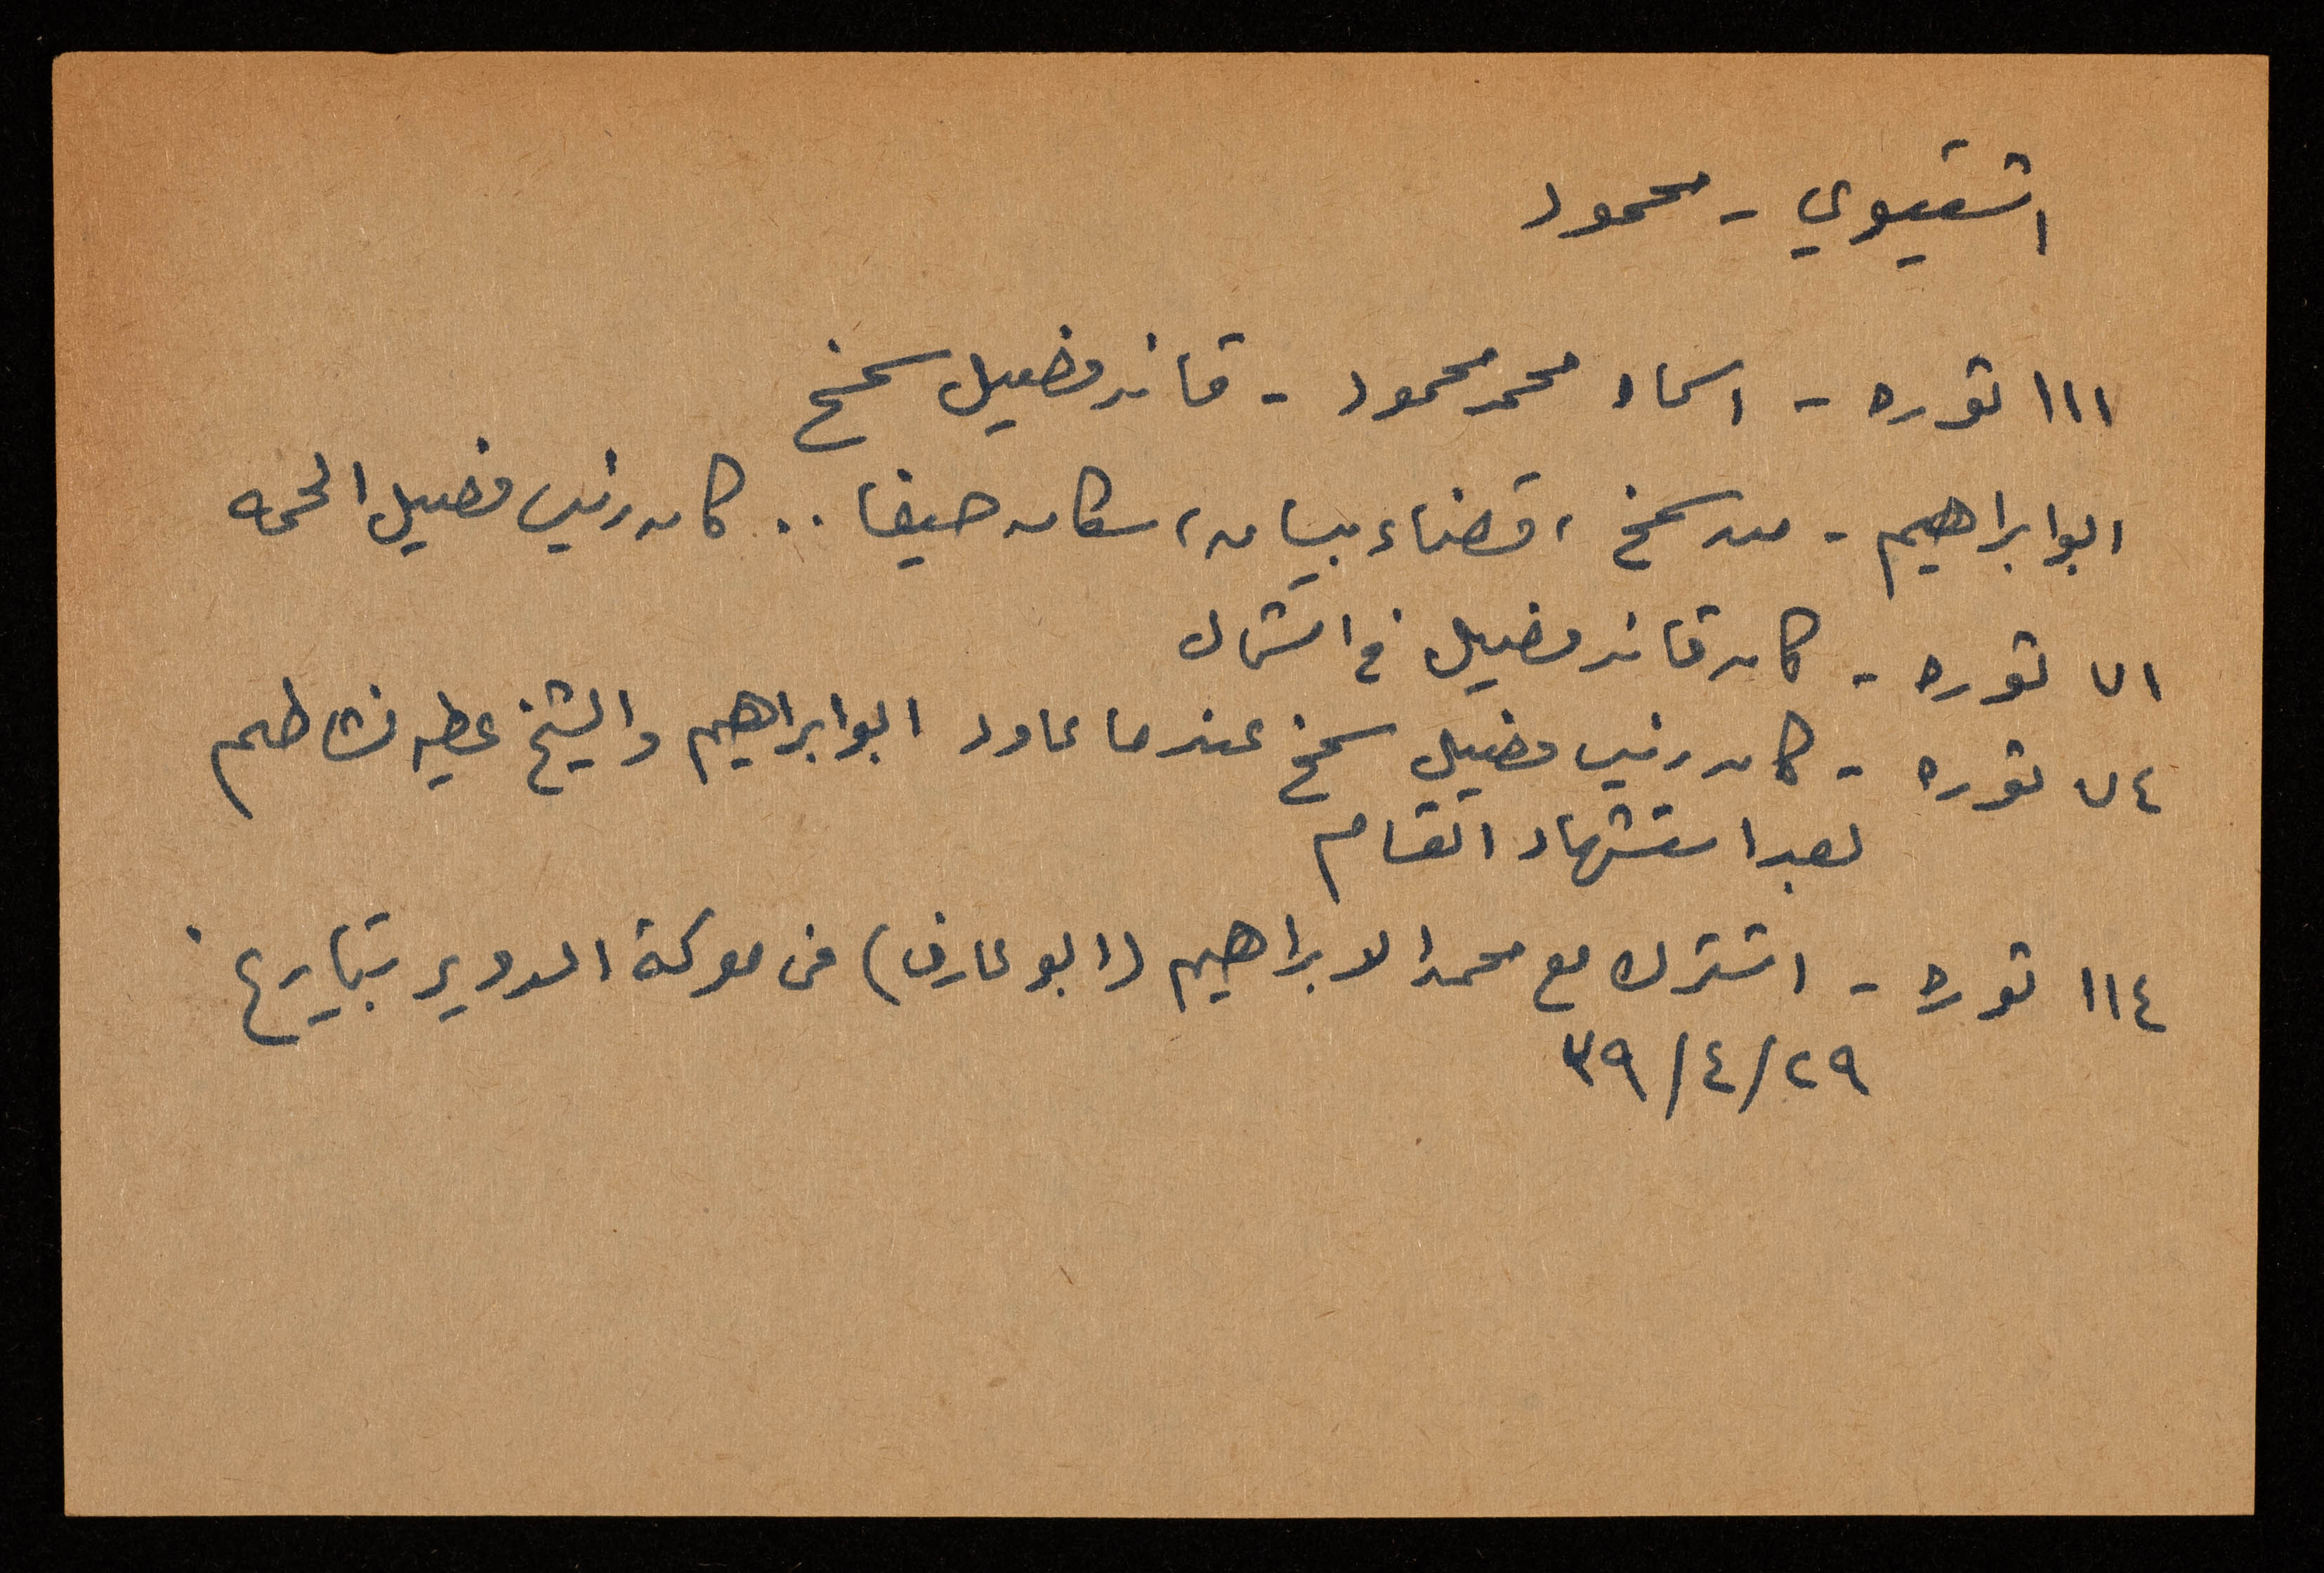 اشتيوي - محمود
١١١ ثوره - اسماه محمد محمود - قائد فصيل سمخ
ابو ابراهيم - من سمخ، قضاء بيسان، سكان حيفا .. كان رئيس فصيل الحمه
٧١ ثوره - كان قائد فصيل في الشمال
٧٤ ثوره - كان رئيس فصيل سمخ عندما عاود ابو ابراهيم والشيخ عطيه نشاطهم
بعد استشهاد القسام
١١٤ ثوره - اشترك مع محمد الابراهيم (ابو عارف) في معركة الدوير بتاريخ
٢٩/٤/٣٩